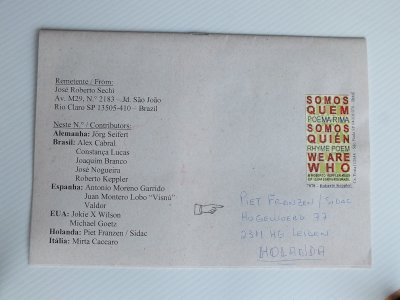 Remetente / From:
José Roberto Sechi
Av. M29, N.º 2183 – Jd. São João
Rio Claro SP 13505-410 – Brazil
Neste N.º / Contributors:
Alemanha: Jörg Seifert
Brasil: Alex Cabral
Constança Lucas
Joaquim Branco
José Nogueira
Roberto Keppler
Espanha: Antonio Moreno Garrido
Juan Montero Lobo "Visnú"
Valdor
EUA: Jokie X Wilson
Michael Goetz
Holanda: Piet Franzen / Sidac
Itália: Mirta Caccaro
SOMOS
QUEM
POEMA RIMA
SOMOS
QUIÉN
RHYME POEM
WE ARE
WHO
Roberto Keppler
PIET FRANZEN / SIDAC
HOGEWOERD 77
2311 HG LEIDEN
HOLANDA